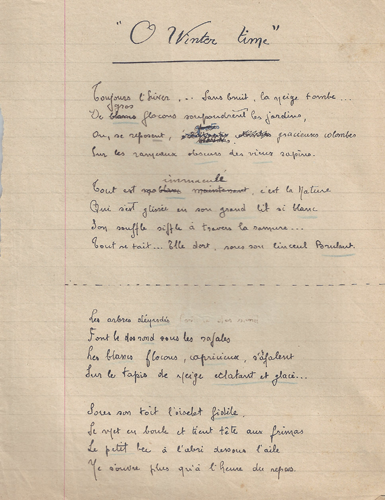 "O Winter time"
Toujours l'hiver... Sans bruit, la neige tombe...
gros
De blancs flocons saupoudrent les jardins,
Où se reposent, gracieuses colombes
Sur les rameaux obscurs des vieux sapins.
immaculé
Tout est maintenant, c'est la Nature
Qui s'est glissée en son grand lit si blanc
Son souffle siffle à travers la ramure...
Tout se tait... Elle dort, sous son linceul
Les arbres
Font le dos rond sous les rafales
Les blancs flocons, capricieux, s'étalent
Sur le tapis de neige éclatant et glacé...
Sous son toit l'oiselet fidèle
Se met en boule et tient tête aux frimas
Le petit bec à l'abri dessous l'aile
Ne s'ouvre plus qu'à l'heure du repas.